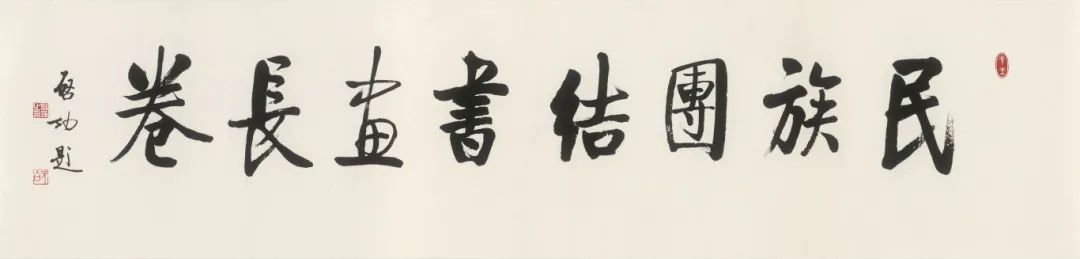 民族團结書畫長卷
启功题